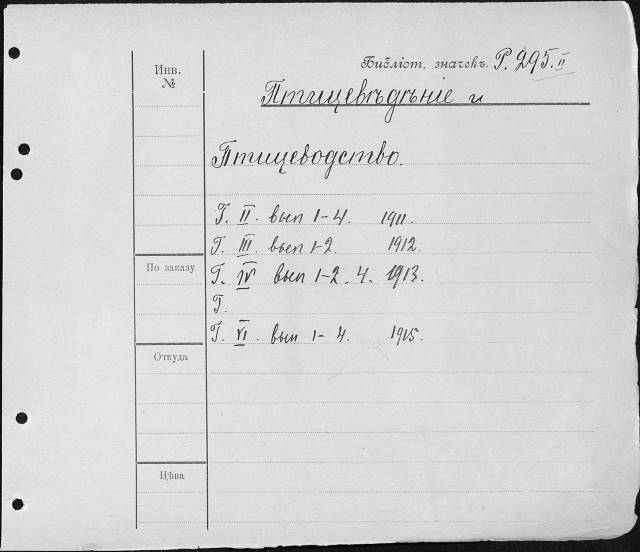 Инв.
№
Библіот. значекъ Р. 295. II
Птицевѣдѣніе и
Птицеводство.
Г. II. вып 1-4. 1911.
Г. III. вып 1-2. 1912.
По заказу
Г. IV вып 1-2. 4. 1913.
Г.
Г. VI. вып 1-4. 1915.
Откуда
Цѣна